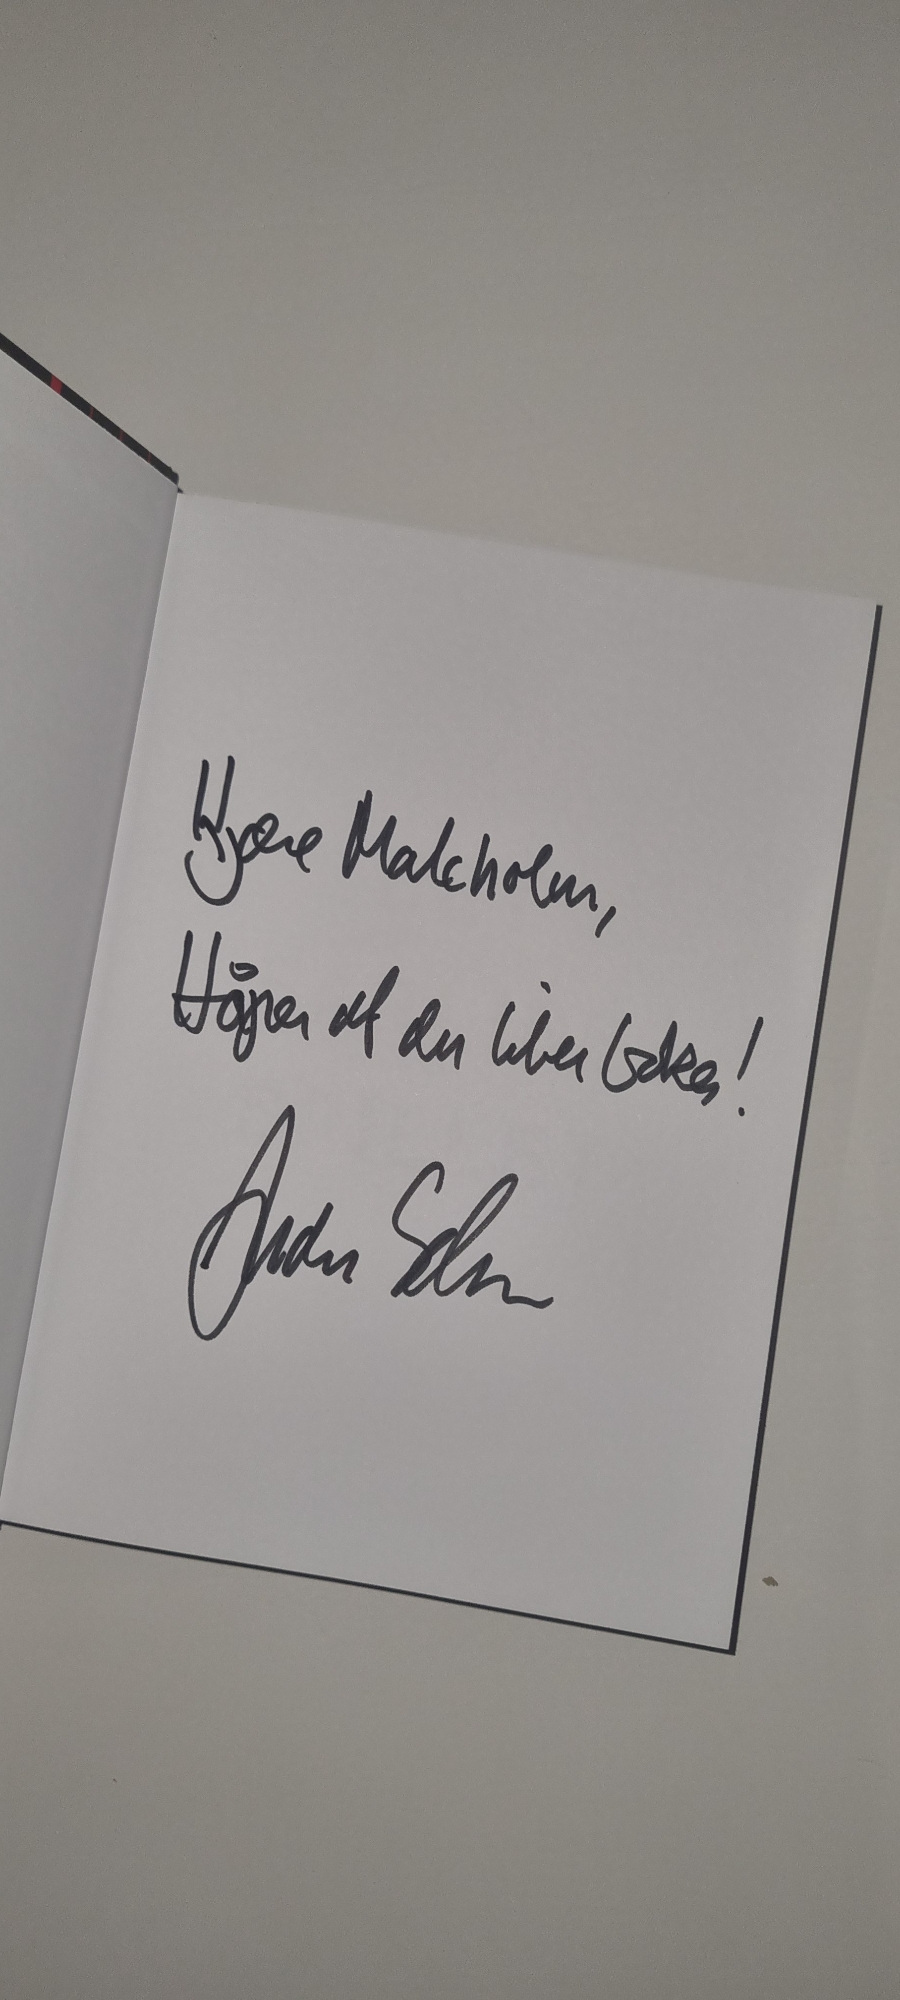 Kjære Malcholm,
Håper at du liker boka!